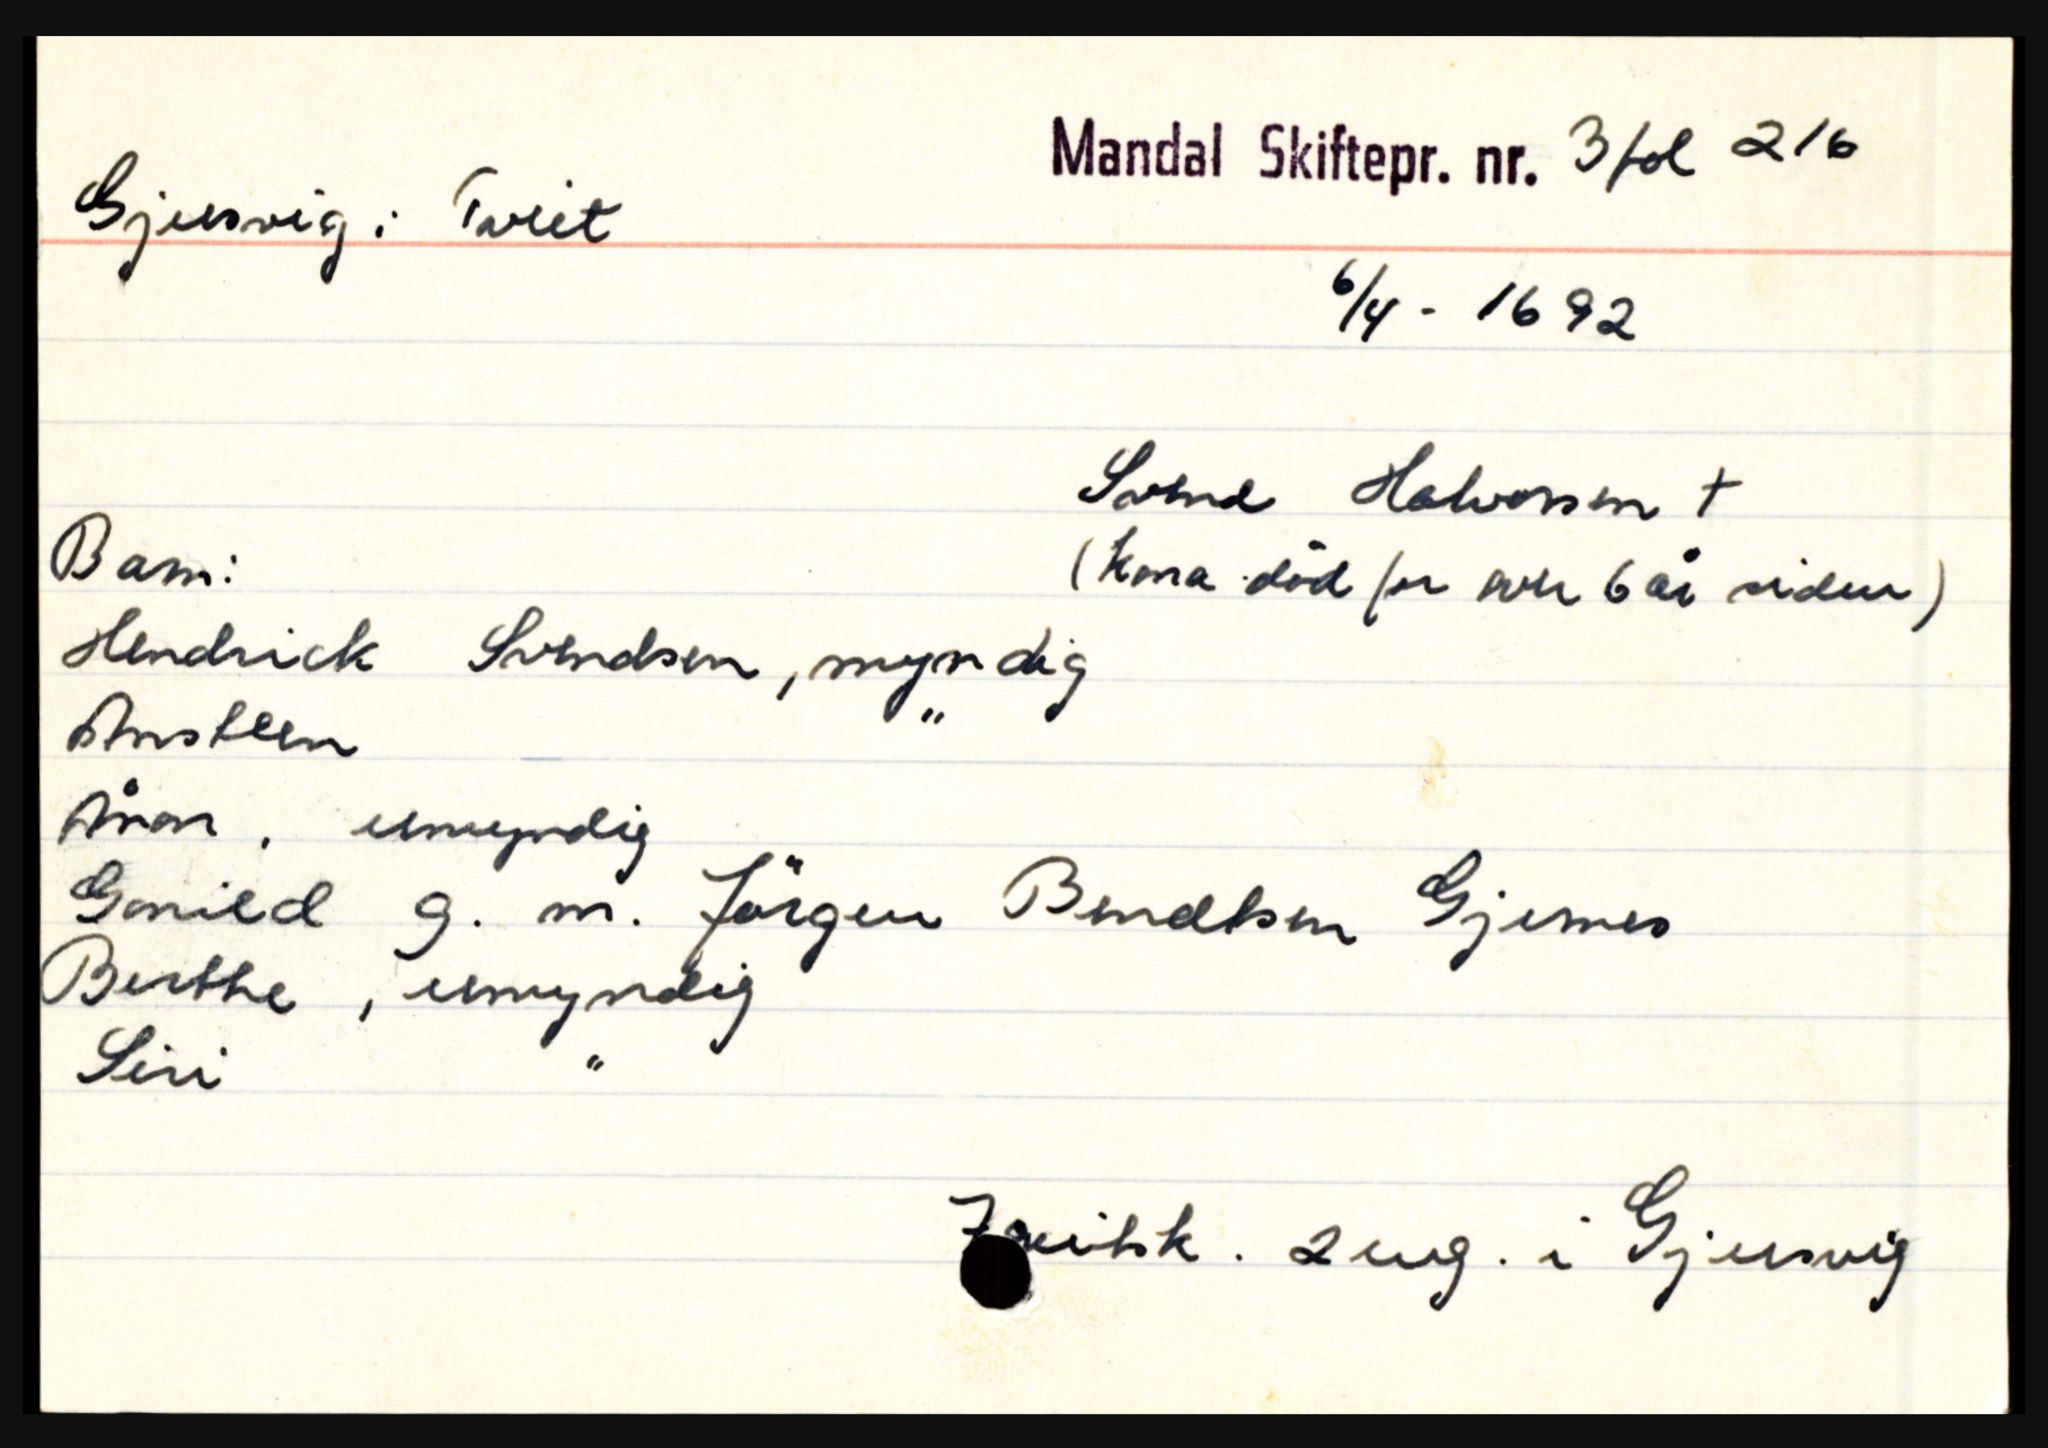 Mandal Skiftepr. nr. 3 fol 216
Gjersvig i Tveit
6/4 - 1692
Svend Halvorsen †
Barn:
(kona död for over 6 år siden)
Hendrick Svendsen, myndig
Ansteen "
Åron, umyndig
Gonild g. m. Jörgen Bendtsen Gjernes
Berthe, umyndig
Siri "
2 eng. i Gjersvig